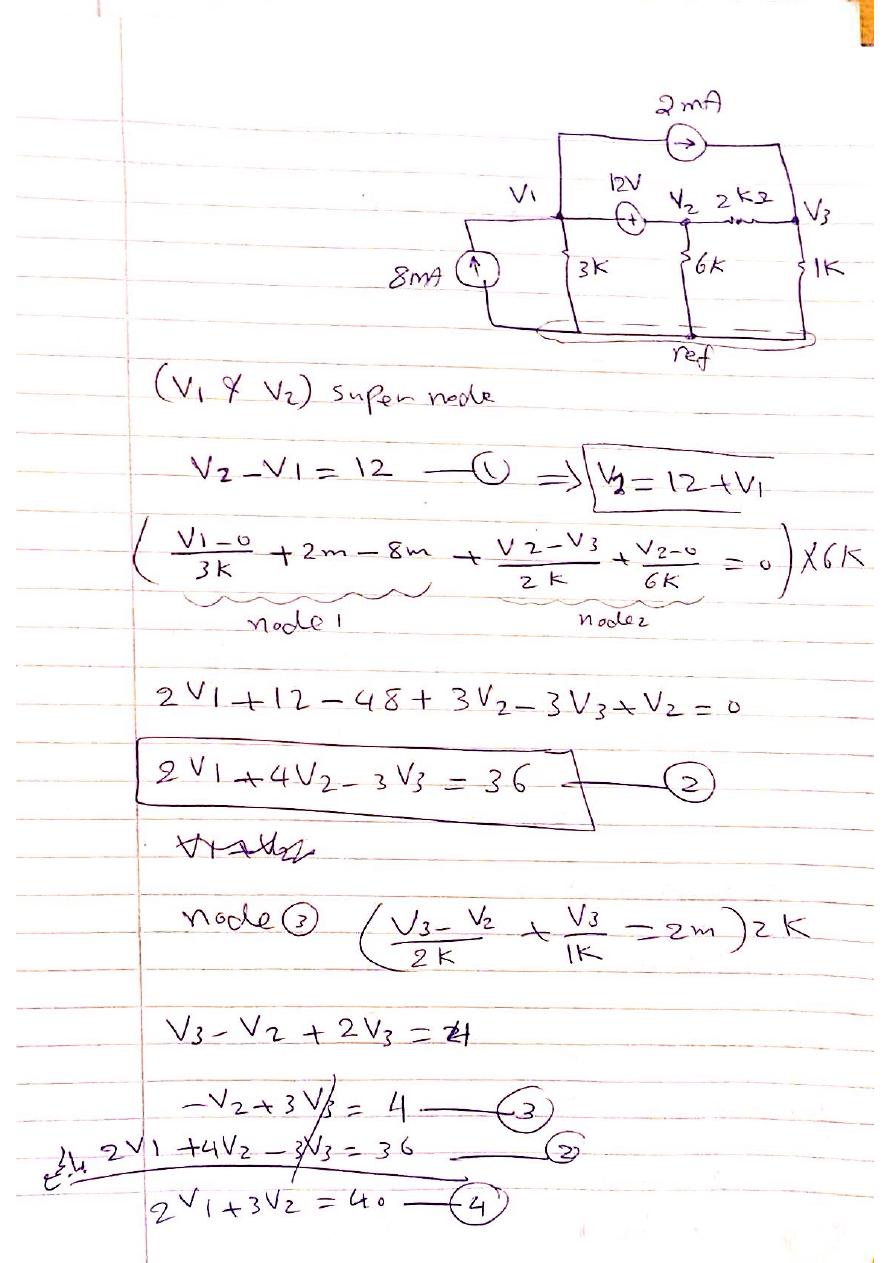 2mA
V1 12V V2 2kΩ V3
8mA 3K 6K 1K
ref
(V1 & V2) super node
V2 - V1 = 12 — ① ⇒ V2 = 12 + V1
( (V1-0)/3K + 2m - 8m + (V2-V3)/2K + (V2-0)/6K = 0 ) X6K
node1 node2
2V1 + 12 - 48 + 3V2 - 3V3 + V2 = 0
2V1 + 4V2 - 3V3 = 36 — ②
node ③ ( (V3-V2)/2K + V3/1K = 2m ) 2K
V3 - V2 + 2V3 = 4
-V2 + 3V3 = 4 — ③
2V1 + 4V2 - 3V3 = 36 — ②
2V1 + 3V2 = 40 — ④